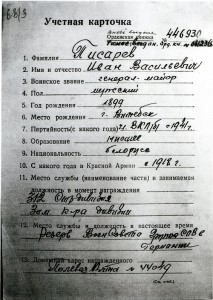 Учетная карточка
446930
1. Фамилия Писарев
2. Имя и отчество Иван Васильевич
3. Воинское звание генерал-майор
4. Пол мужской
5. Год рождения 1899
6. Место рождения г. Витебск
7. Партийность (с какого года) ч. ВКП/б/ с 1921 г.
8. Образование
9. Национальность белорус
10. С какого года в Красной Армии с 1918 г.
11. Место службы (наименование части) и занимаемая
должность в момент награждения
312
Зам. к-ра дивизии
12. Место службы и должность в настоящее время
Резерв Воен Совета
Германии
13. Домашний адрес награжденного
Полевая Почта №